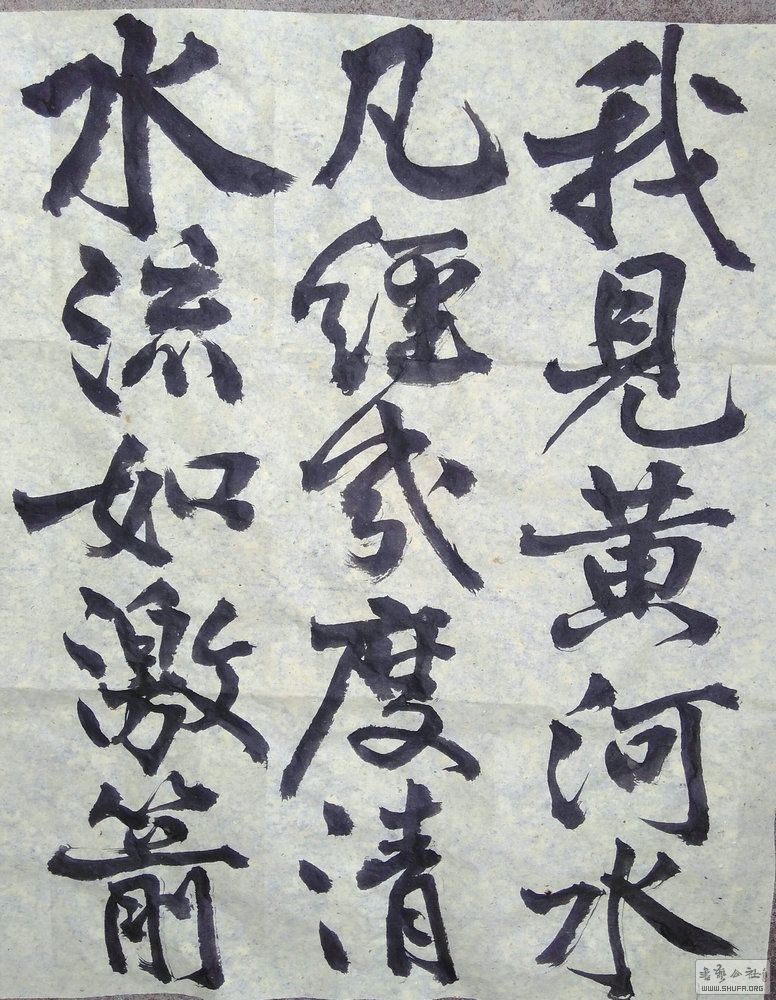 我見黄河水
凡經幾度清
水流如激箭
书法公社
WWW.SHUFA.ORG